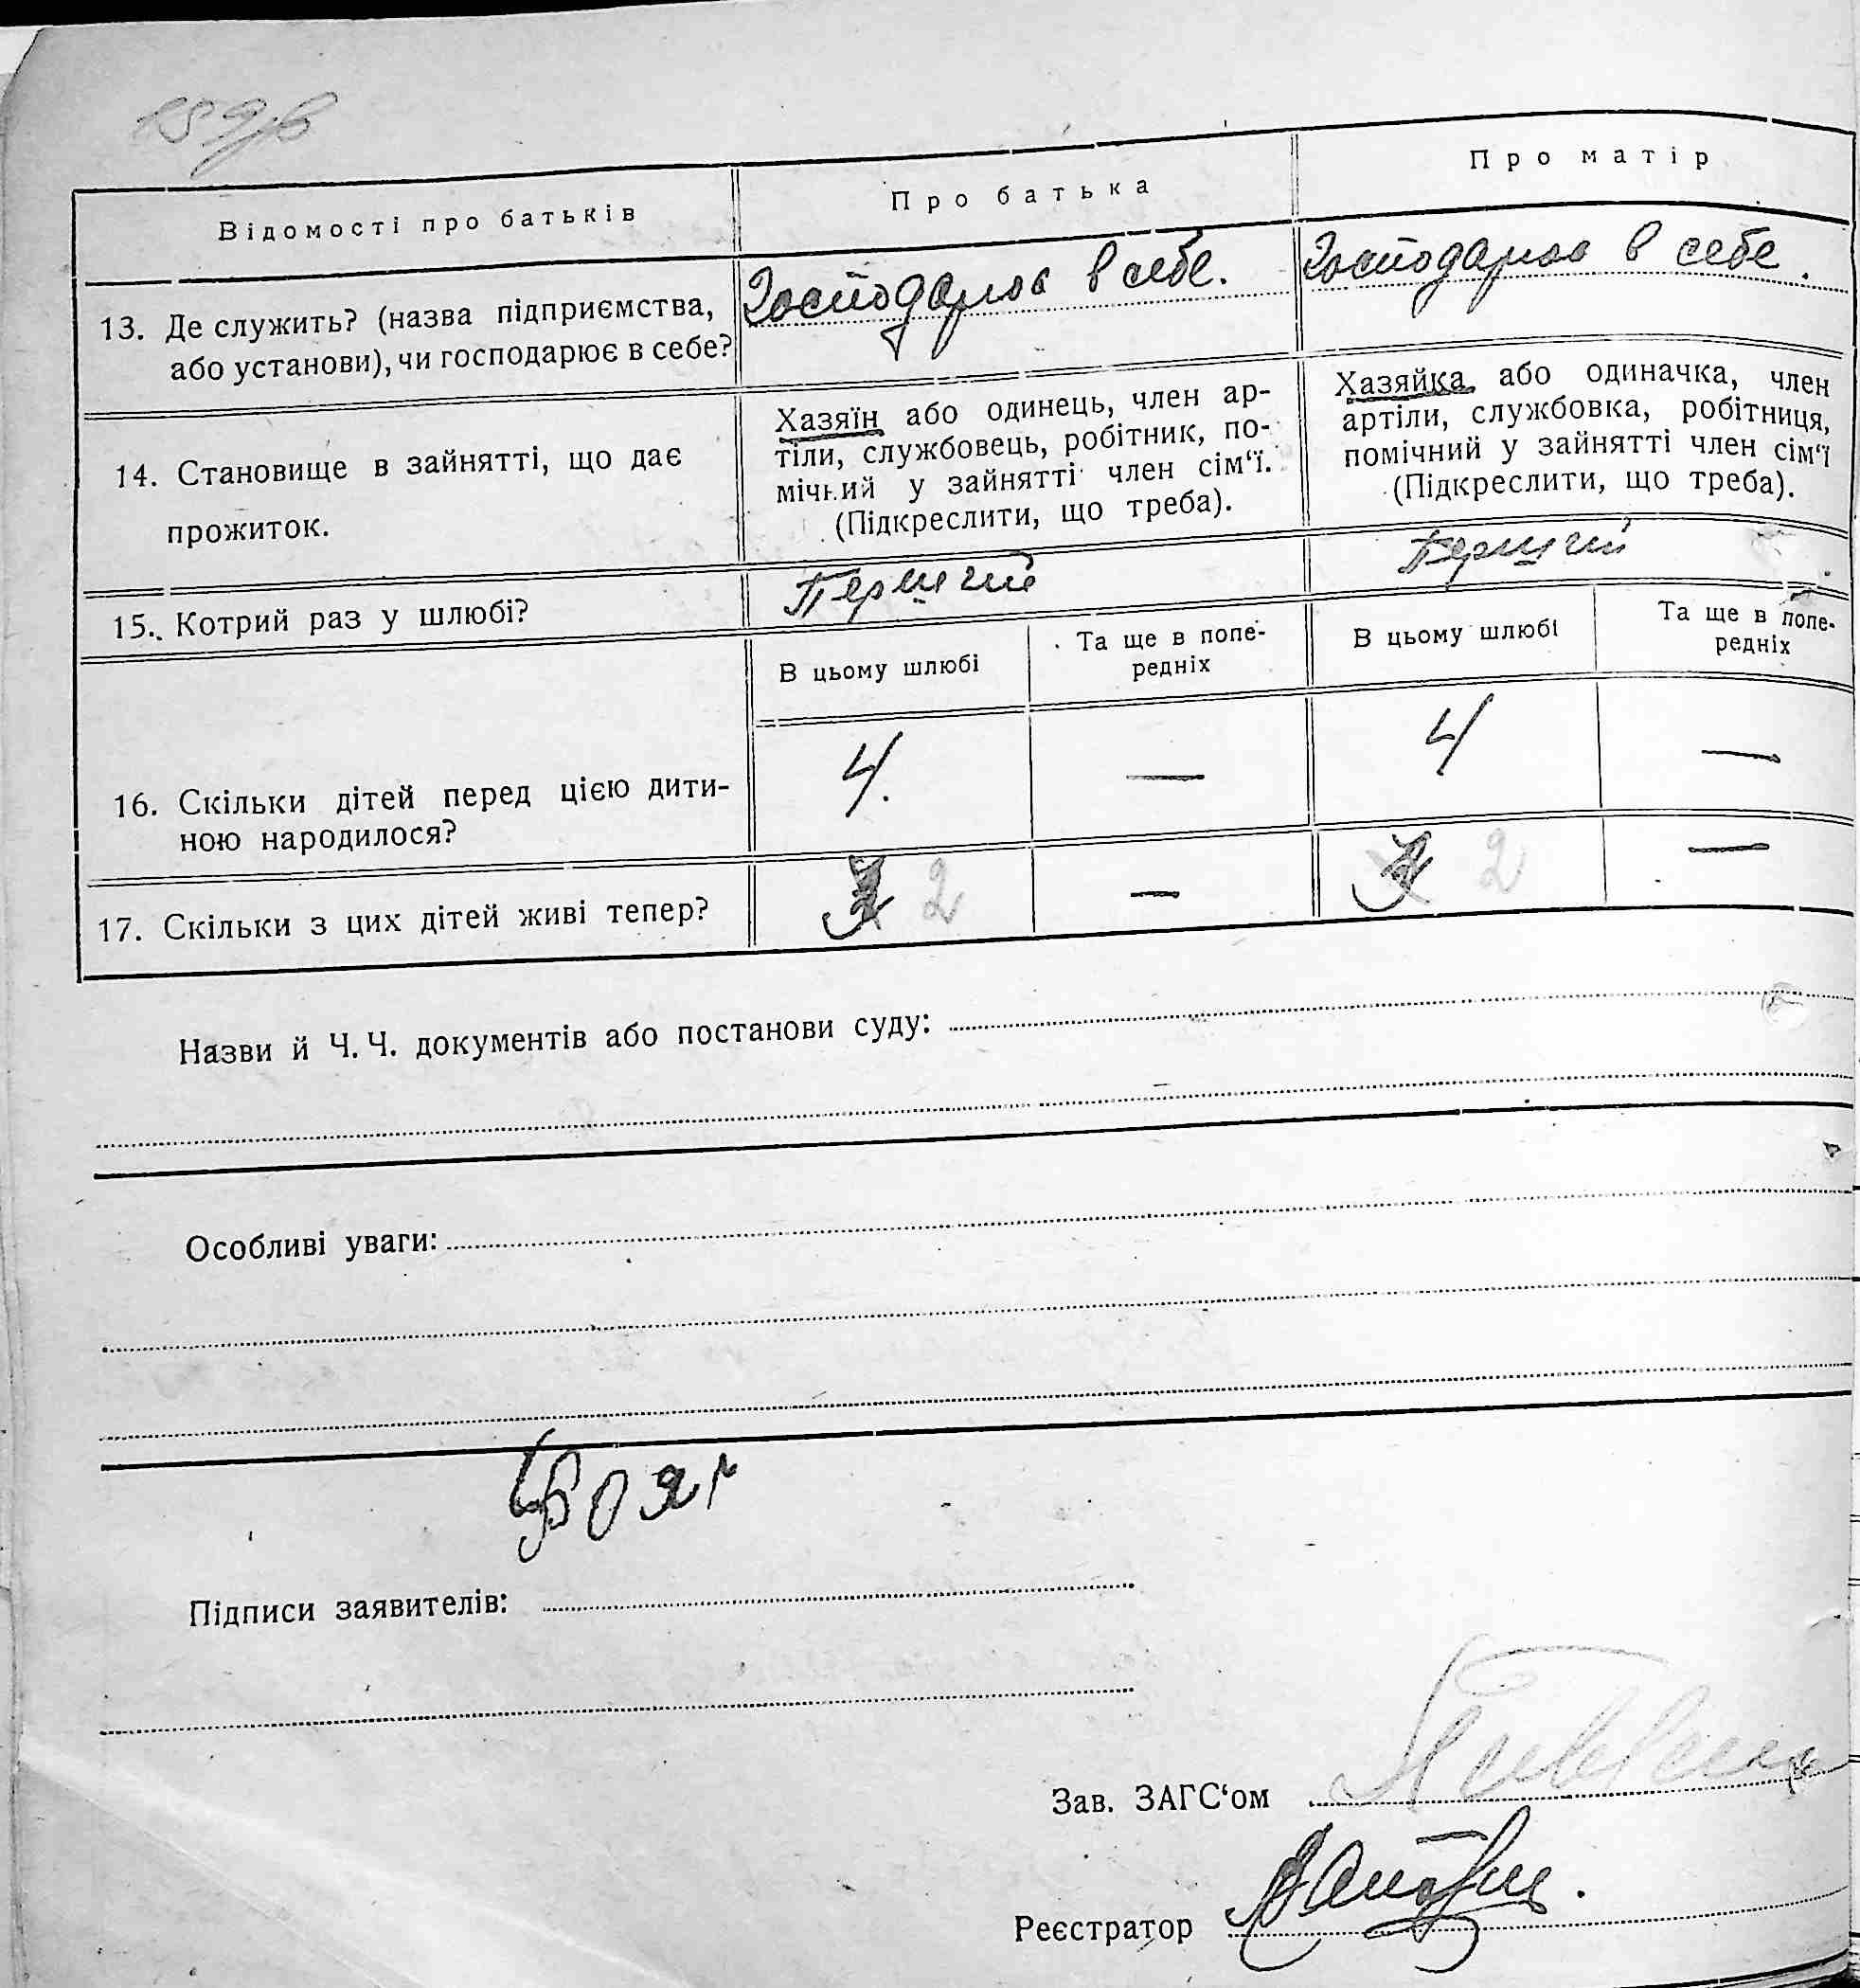 Відомості про батьків
Про батька
Про матір
13. Де служить? (назва підприємства,
або установи), чи господарює в себе?
Господарює в себе.
Господарює в себе.
14. Становище в зайнятті, що дає
прожиток.
Хазяїн або одинець, член ар-
тіли, службовець, робітник, по-
мічний у зайнятті член сім‘ї.
(Підкреслити, що треба).
Хазяйка або одиначка, член
артіли, службовка, робітниця,
помічний у зайнятті член сім‘ї
(Підкреслити, що треба).
15. Котрий раз у шлюбі?
Перший
Перший
В цьому шлюбі
Та ще в попе-
редніх
В цьому шлюбі
Та ще в попе-
редніх
16. Скільки дітей перед цією дити-
ною народилося?
4. — 4 —
17. Скільки з цих дітей живі тепер?
2 — 2 —
Назви й Ч. Ч. документів або постанови суду:
Особливі уваги:
Підписи заявителів:
Зав. ЗАГС‘ом
Реєстратор